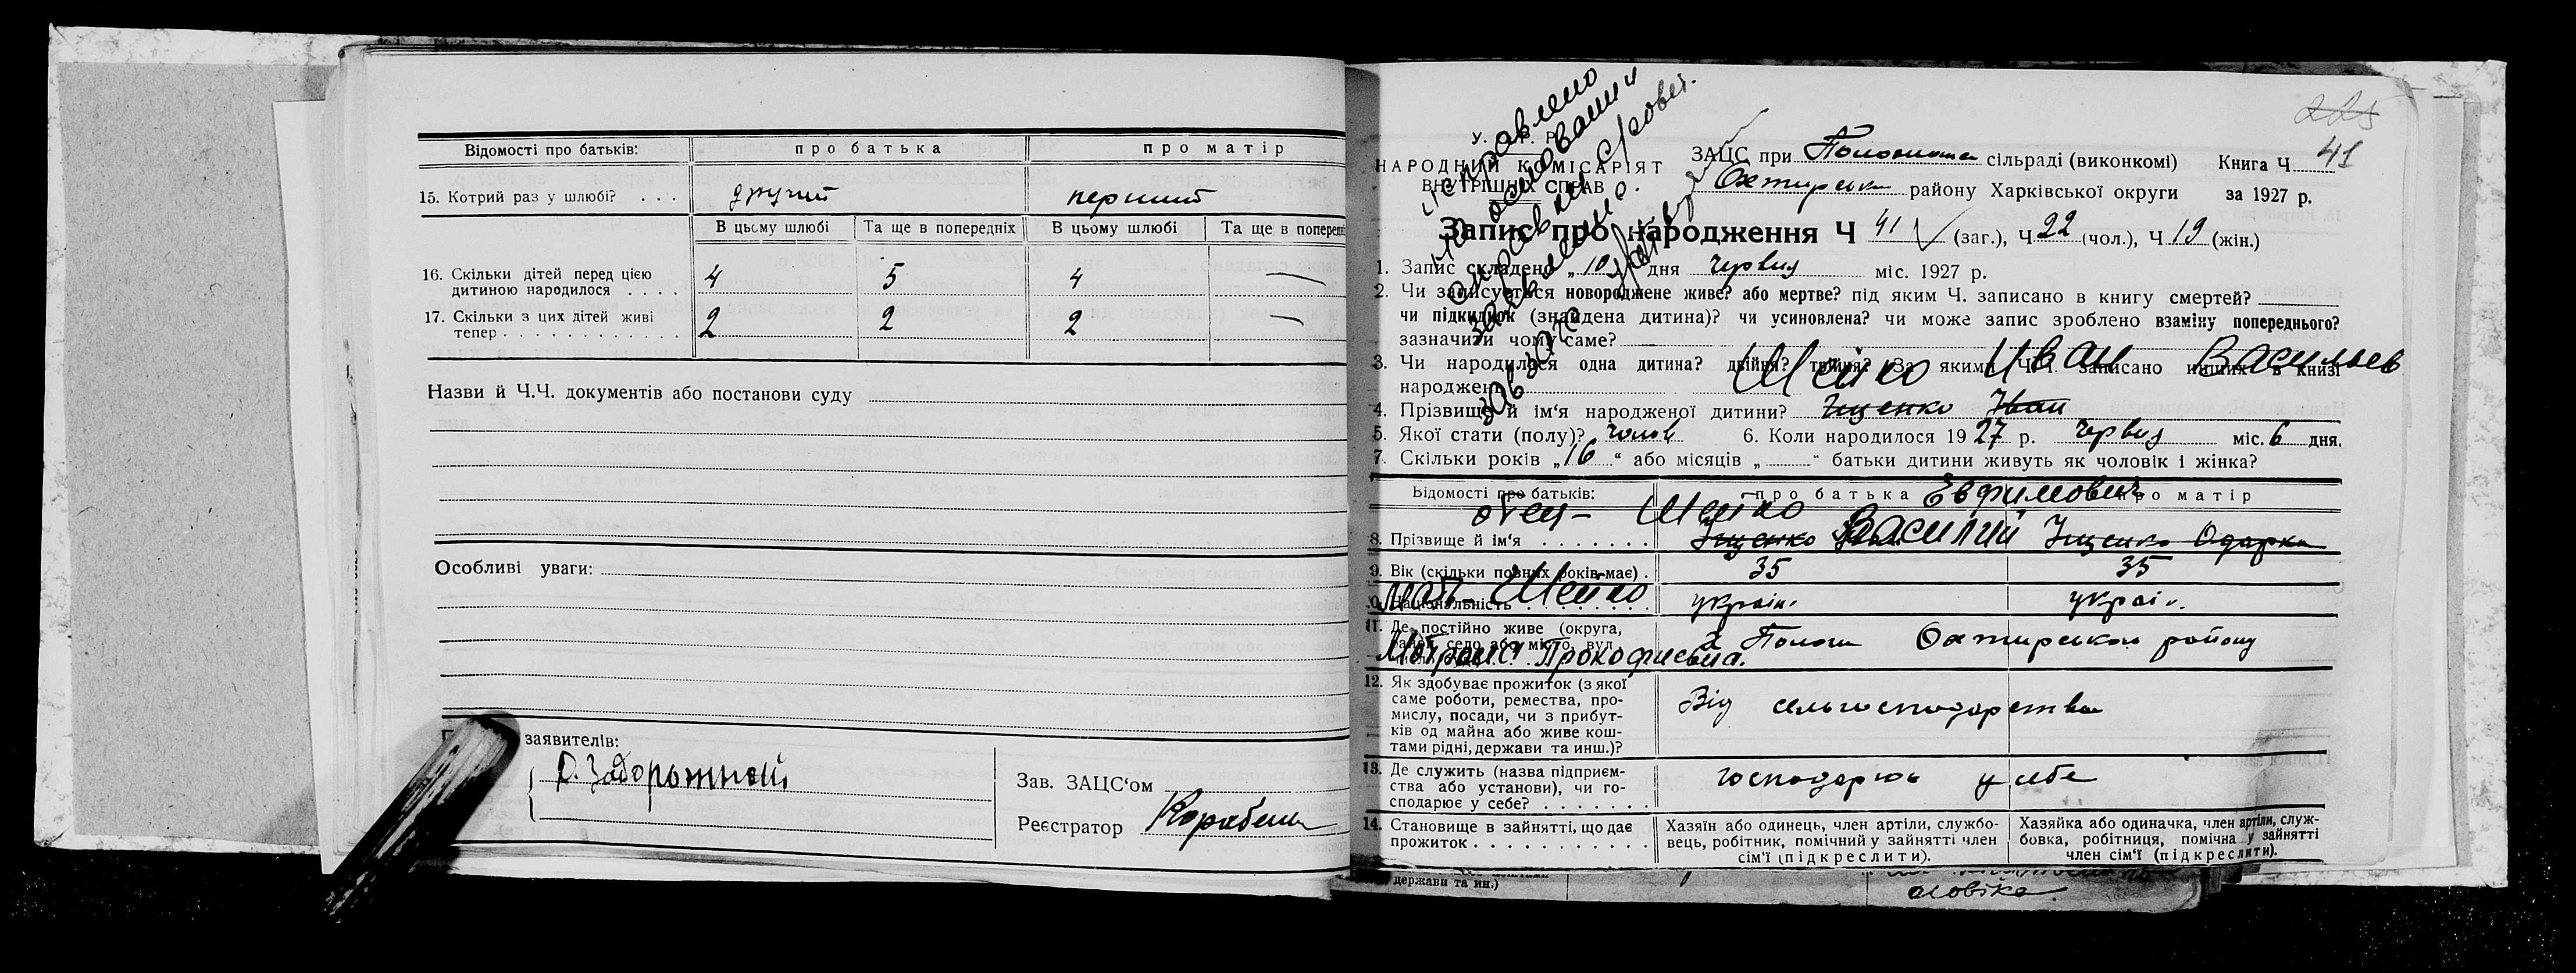 Відомості про батьків: про батька про матір
15. Котрий раз у шлюбі? . . . другий перший
В цьому шлюбі Та ще в попередніх В цьому шлюбі Та ще в попередні
16. Скільки дітей перед цією
дитиною народилося . . . . 4 5 4 —
17. Скільки з цих дітей живі
тепер . . . . . . . . . . . . 2 2 2 —
Назви й Ч.Ч. документів або постанови суду
Особливі уваги:
заявителів:
О. Задорожний
Зав. ЗАЦС'ом
Реєстратор
225
исправлено
на основании
справки с/совет.
У. Р.
НАРОДНИЙ КОМІСАРІЯТ
ВНУТРІШНІХ СПРАВ
ЗАЦС при сільраді (виконкомі) Книга Ч 41
району Харківської округи за 1927 р.
Запис про народження Ч 41 (заг.), Ч 22 (чол.), Ч 19 (жін.)
1. Запис складено „10" дня червня міс. 1927 р.
2. Чи записується новороджене живе? або мертве? під яким Ч. записано в книгу смертей?
чи підкидьок (знайдена дитина)? чи усиновлена? чи може запис зроблено взаміну попереднього?
зазначити чому саме?
3. Чи народилося одна дитина? двійня? трійня? За якими Ч.Ч. записано инших в книзі
народжен
Шейко Иван Васильев
4. Прізвище й ім'я народженої дитини? Іщенко Іван
5. Якої стати (полу)? чолов 6. Коли народилося 1927 р. червня міс. 6 дня.
7. Скільки років „16" або місяців „ " батьки дитини живуть як чоловік і жінка?
Відомості про батьків: про батька про матір
Евфимович
отец – Шейко Василий
8. Прізвище й ім'я . . . . . . . Іщенко Іщенко Одарка
9. Вік (скільки повних років має) . 35 35
мать – Шейко
10. Національність . . . . . . . україн. украї
11. Де постійно живе (округа,
район, село або місто, вул., х Пологи Охтирського району
Прокофиевна.
12. Як здобуває прожиток (з якої
саме роботи, ремества, про-
мислу, посади, чи з прибут-
ків од майна або живе кош-
тами рідні, держави та инш.)?
Від сельгосподарства
13. Де служить (назва підприєм-
ства або установи), чи го-
сподарює у себе? . . . . . . .
господарює у себе
14. Становище в зайнятті, що дає
прожиток . . . . . . . . . . .
Хазяїн або одинець, член артіли, службо-
вець, робітник, помічний у зайнятті член
сім'ї (підкреслити).
Хазяйка або одиначка, член артіли, служ-
бовка, робітниця, помічна у зайнятті
член сім'ї (підкреслити).
держави та ин.)